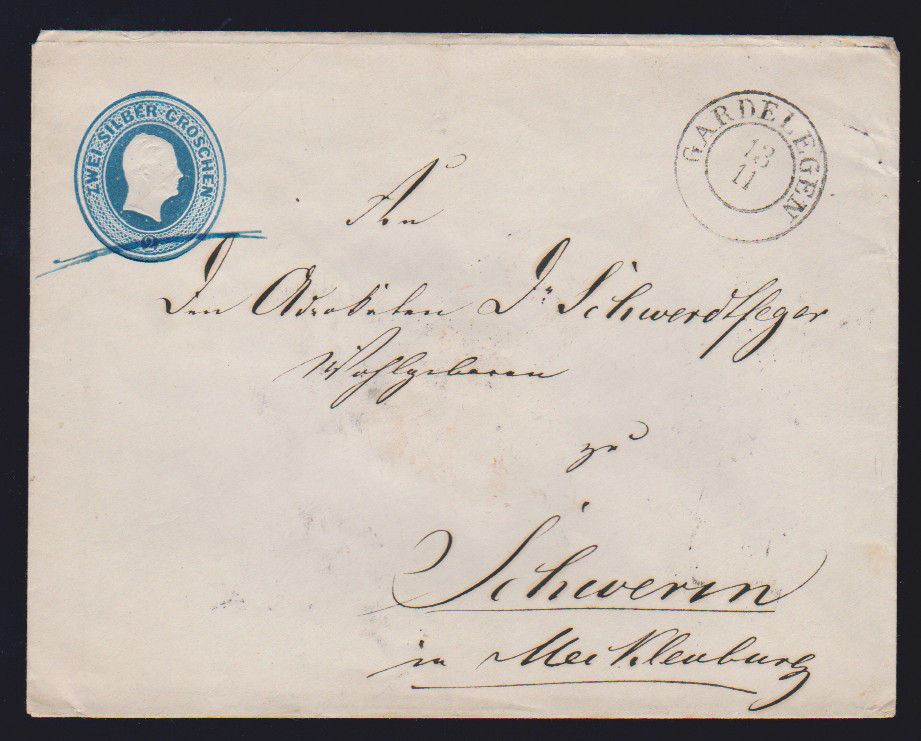 ZWEI SILBER GROSCHEN
2
GARDELEGEN
13
11
An
Den Advokaten Dr Schwerdtfeger
Wohlgeboren
zu
Schwerin
in Mecklenburg